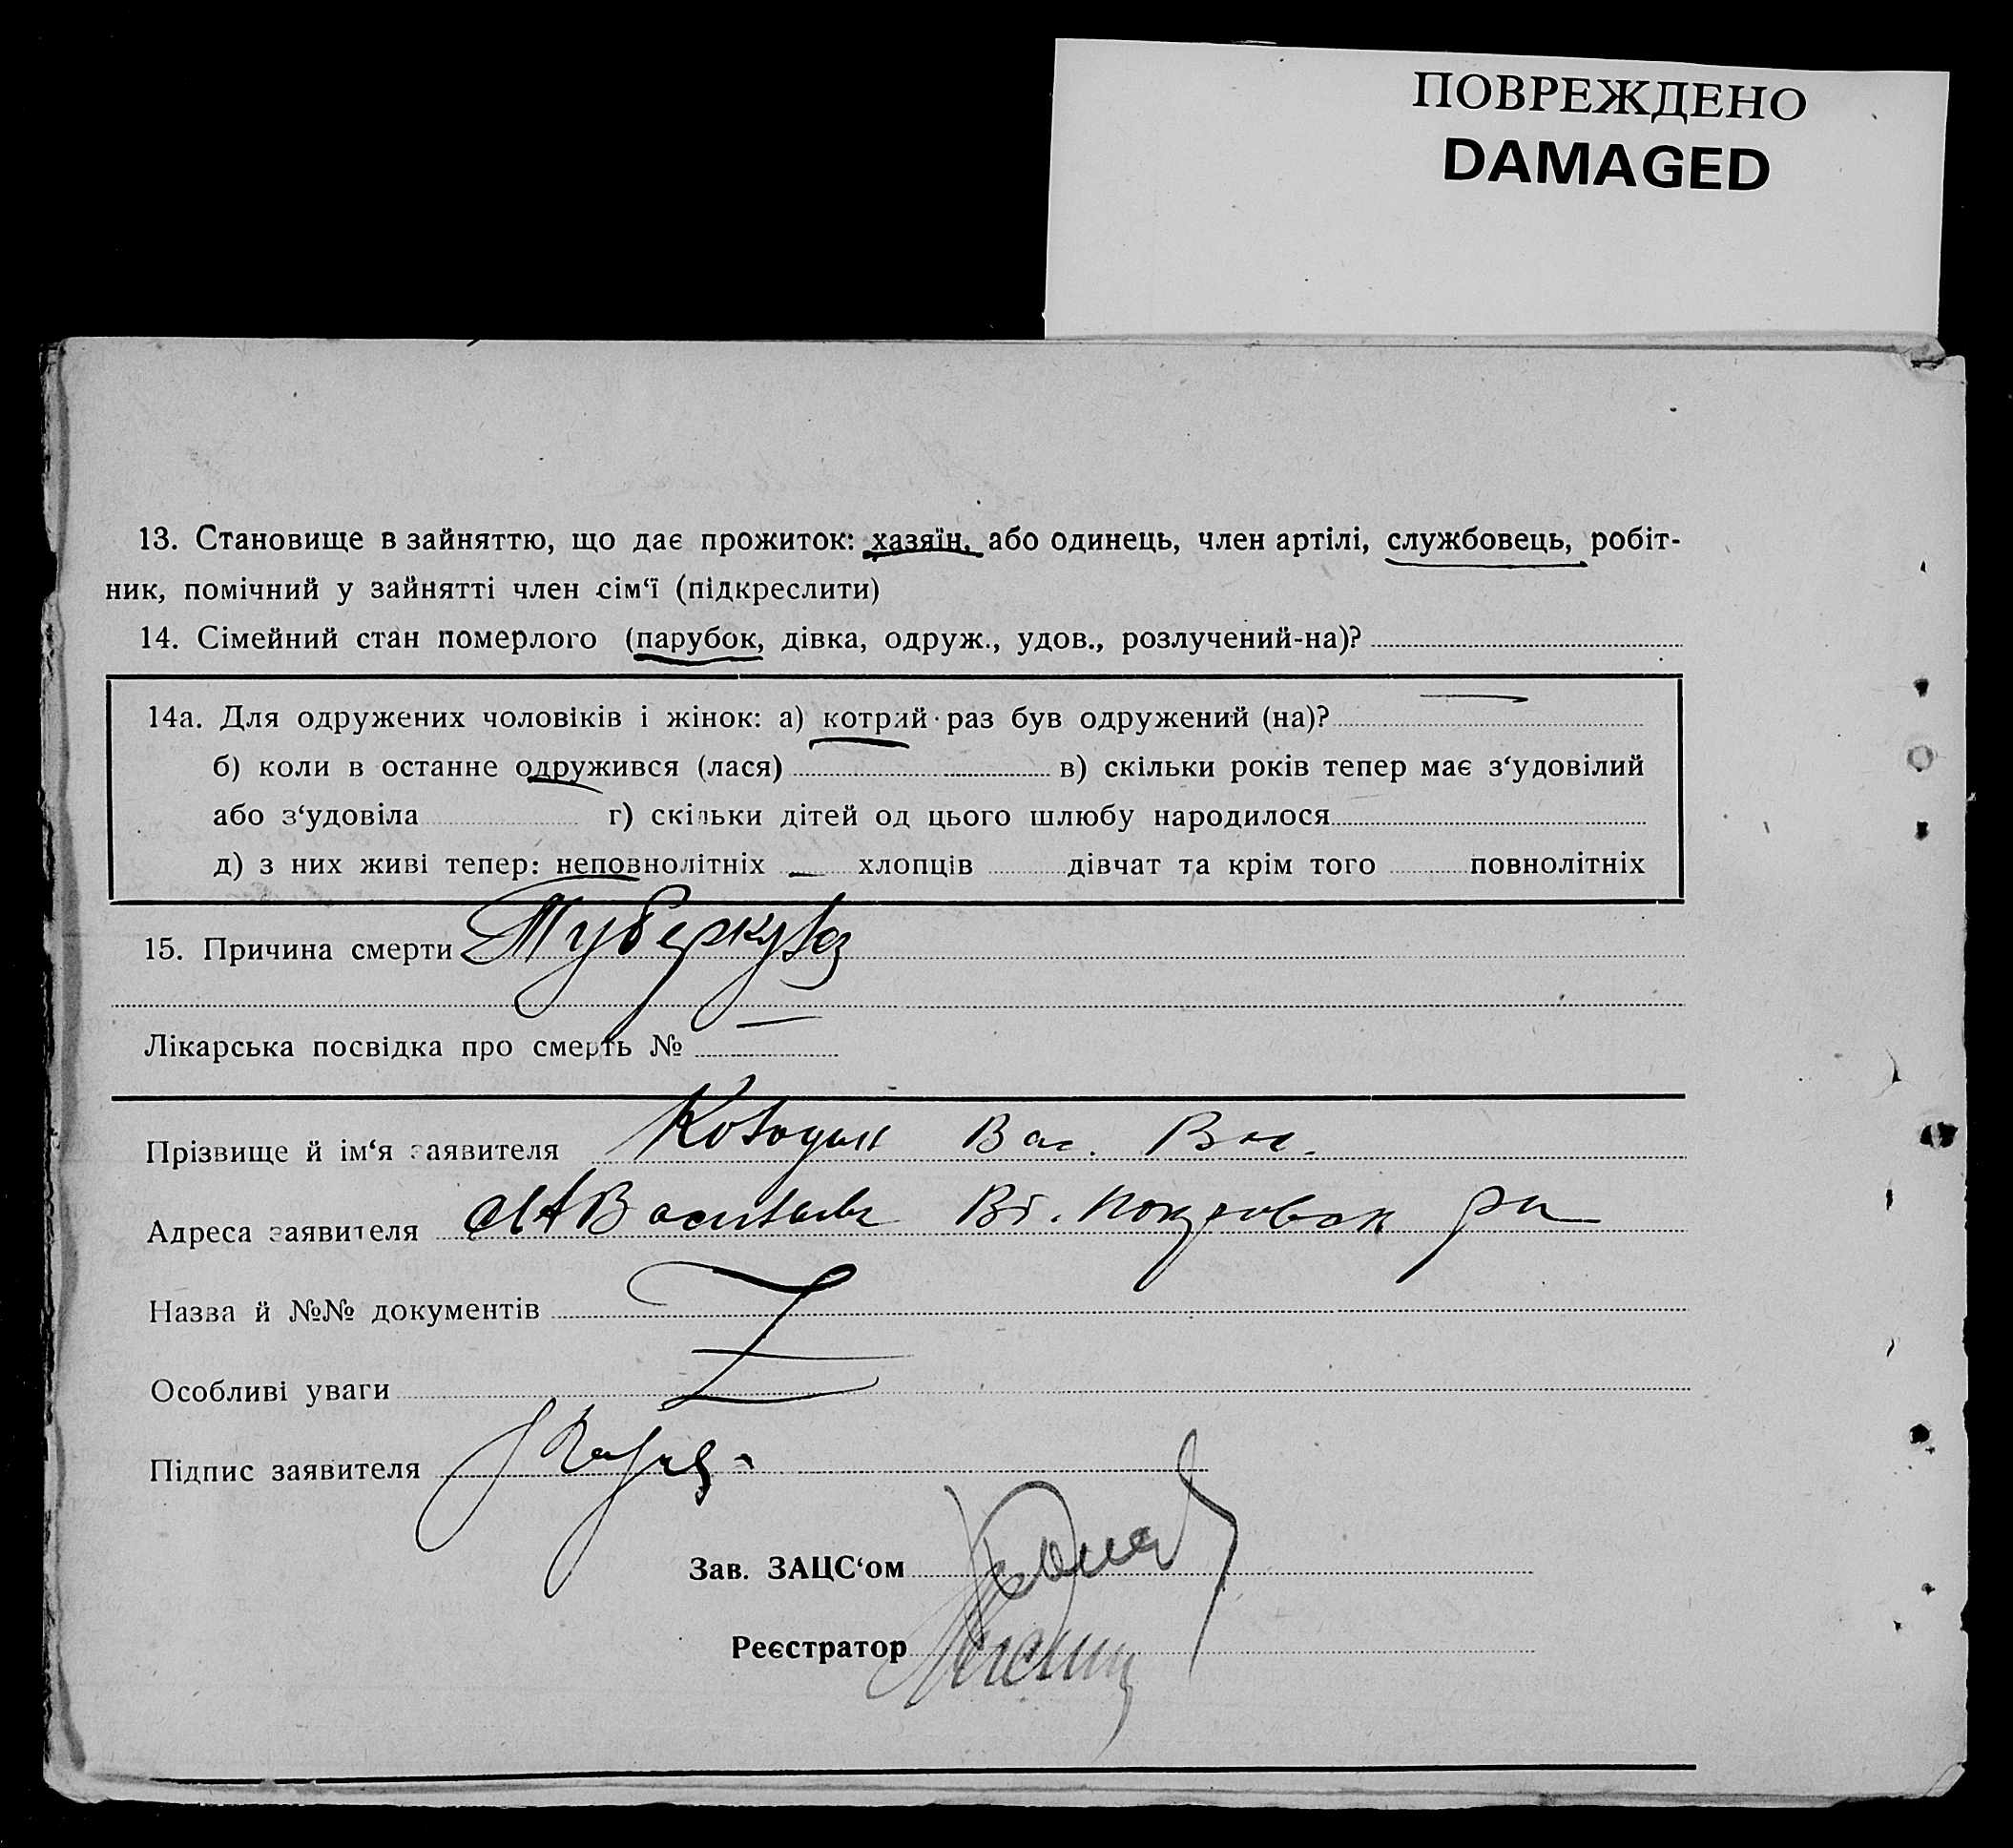 ПОВРЕЖДЕНО
DAMAGED
13. Становище в зайняттю, що дає прожиток: хазяїн, або одинець, член артілі, службовець, робіт-
ник, помічний у зайнятті член сім‘ї (підкреслити)
14. Сімейний стан померлого (парубок, дівка, одруж., удов., розлучений-на)?
14а. Для одружених чоловіків і жінок: а) котрий раз був одружений (на)?
б) коли в останне одружився (лася) в) скільки років тепер має з‘удовілий
або з‘удовіла г) скільки дітей од цього шлюбу народилося
д) з них живі тепер: неповнолітніх — хлопців дівчат та крім того повнолітніх
15. Причина смерти Туберкулоз
Лікарська посвідка про смерть № —
Прізвище й ім‘я заявителя Вас. Вас.
Адреса заявителя Покровск рн
Назва й №№ документів
Особливі уваги
Підпис заявителя
Зав. ЗАЦС‘ом
Реєстратор